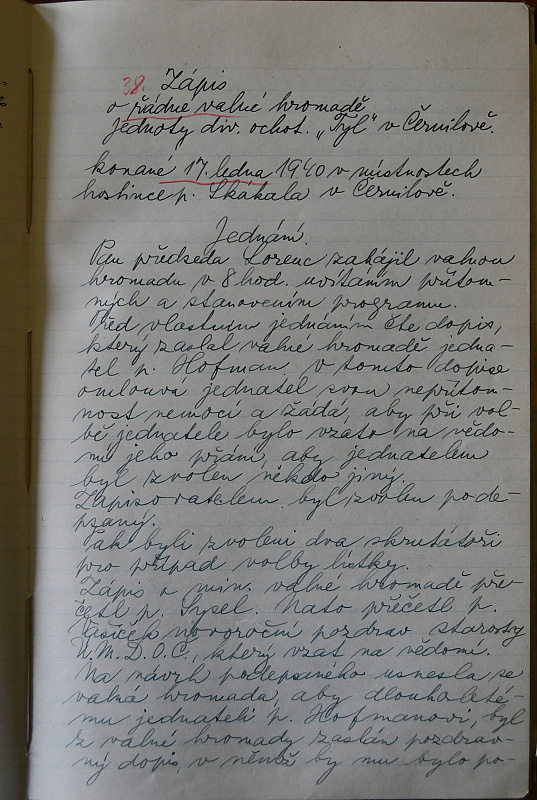 38. Zápis
o řádné valné hromadě
jednoty div. ochot. „Tyl" v Černilově.
konané 17. ledna 1940 v místnostech
hostince p. Skákala v Černilově.
Jednání.
Pan předseda Lorenc zahájil valnou
hromadu v 8 hod. uvítáním přítom-
ných a stanovením programu.
Před vlastním jednáním čte dopis,
který zaslal valné hromadě jedna-
tel p. Hofman. v tomto dopise
omlouvá jednatel svou nepřítom-
nost nemocí a žádá, aby při vol-
bě jednatele bylo vzato na vědo-
mí jeho přání, aby jednatelem
byl zvolen někdo jiný.
Zapisovatelem byl zvolen pode-
psaný.
Pak byli zvoleni dva skrutátoři
pro případ volby lístky.
Zápis o min. valné hromadě pře-
četl p. Sysel. Nato přečetl p.
Vašíček novoroční pozdrav starosty
Ú.M.D.O.Č., který vzat na vědomí.
Na návrh podepsaného usnesla se
valná hromada, aby dlouholeté-
mu jednateli p. Hofmanovi, byl
z valné hromady zaslán pozdrav-
ný dopis, v němž by mu bylo po-